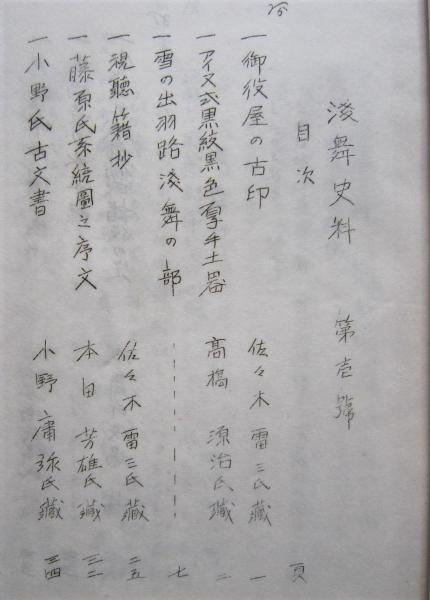 浅舞史料　第壱號
目次　頁
一 御役屋の古印　佐々木雷三氏蔵　一
一 アイヌ式黒紋黒色厚手土器　高橋源治氏蔵　二
一 雪の出羽路浅舞の部　七
一 視聽籍抄　佐々木雷三氏蔵　二五
一 藤原氏系統圖之序文　本田芳雄氏蔵　三二
一 小野氏古文書　小野庸弥氏蔵　三四